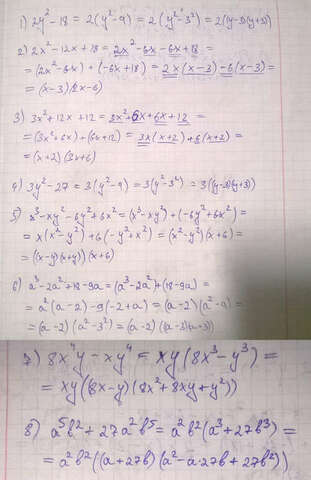 1) 2y² - 18 = 2(y² - 9) = 2(y² - 3²) = 2(y-3)(y+3)
2) 2x² - 12x + 18 = 2x² - 6x - 6x + 18 =
= (2x² - 6x) + (-6x + 18) = 2x(x-3) - 6(x-3) =
= (x-3)(2x-6)
3) 3x² + 12x + 12 = 3x² + 6x + 6x + 12 =
= (3x² + 6x) + (6x + 12) = 3x(x+2) + 6(x+2) =
= (x+2)(3x+6)
4) 3y² - 27 = 3(y² - 9) = 3(y² - 3²) = 3(y-3)(y+3)
5) x³ - xy² - 6y² + 6x² = (x³ - xy²) + (-6y² + 6x²) =
= x(x² - y²) + 6(-y² + x²) = (x² - y²)(x+6) =
= (x-y)(x+y)(x+6)
6) a³ - 2a² + 18 - 9a = (a³ - 2a²) + (18 - 9a) =
= a²(a-2) - 9(-2+a) = (a-2)(a² - 9) =
= (a-2)(a² - 3²) = (a-2)(a-3)(a+3)
7) 8x⁴y - xy⁴ = xy(8x³ - y³) =
= xy((8x-y)(8x² + 8xy + y²))
8) a⁵b² + 27a²b⁵ = a²b²(a³ + 27b³) =
= a²b²((a+27b)(a² - a·27b + 27b²))